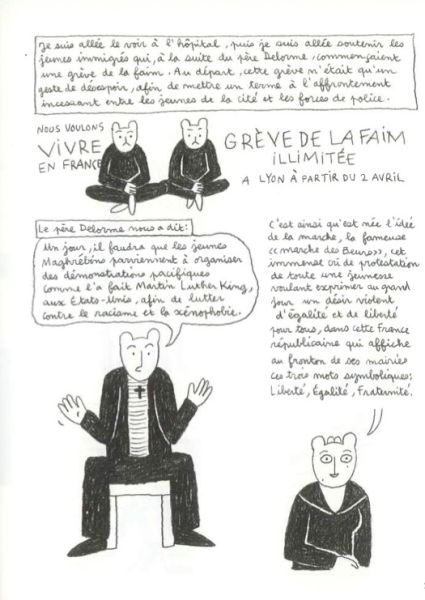 Je suis allée le voir à l'hôpital, puis je suis allée soutenir les
jeunes immigrés qui, à la suite du père Delorme, commençaient
une grève de la faim. Au départ, cette grève n'était qu'un
geste de désespoir, afin de mettre un terme à l'affrontement
incessant entre les jeunes de la cité et les forces de police.
NOUS VOULONS
VIVRE
EN FRANCE
GRÈVE DE LA FAIM
ILLIMITÉE
A LYON À PARTIR DU 2 AVRIL
Le père Delorme nous a dit:
Un jour, il faudra que les jeunes
Maghrébins parviennent à organiser
des démonstrations pacifiques
comme l'a fait Martin Luther King,
aux États-Unis, afin de lutter
contre le racisme et la xénophobie.
C'est ainsi qu'est née l'idée
de la marche, la fameuse
«marche des Beurs», cet
immense cri de protestation
de toute une jeunesse
voulant exprimer au grand
jour un désir violent
d'égalité et de liberté
pour tous, dans cette France
républicaine qui affiche
au fronton de ses mairies
ces trois mots symboliques:
Liberté, Égalité, Fraternité.